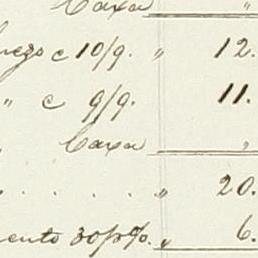 Caixa "
c 10/9. " 12.
" c 9/9. 11.
Caixa "
. . . . " 20.
ento 30 p%. " 6.